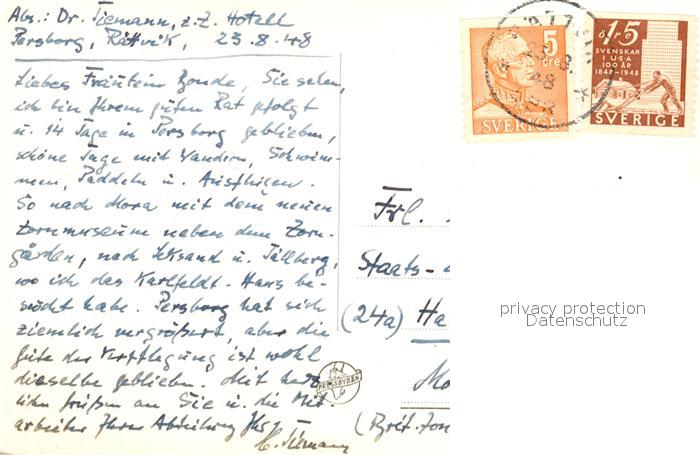 Abs.: Dr. Tiemann, z. Z. Hotell
Persborg, Rättvik, 23.8.48
Liebes Fräulein Bonde, Sie sehen,
ich bin Ihrem guten Rat gefolgt
u. 14 Tage in Persborg geblieben,
schöne Tage mit Wandern, Schwim-
men, Paddeln u. Ausflügen.
So nach Mora mit dem neuen
Zornmuseum neben dem Zorn-
gården, nach Leksand u. Tällberg,
wo ich das Karlfeldt-Haus be-
sucht habe. Persborg hat sich
ziemlich vergrößert, aber die
Güte der Verpflegung ist wohl
dieselbe geblieben. Mit herz-
lichen Grüßen an Sie u. die Mit-
arbeiter Ihrer Abteilung Ihr
H. Tiemann
PRESSBYRÅN
5
öre
SVERIGE
48
öre 15
SVENSKAR
I USA
100 ÅR
1848-1948
SVERIGE
Frl.
Staats-
(24a) Ha
Mo
(Brit. Zon
privacy protection
Datenschutz